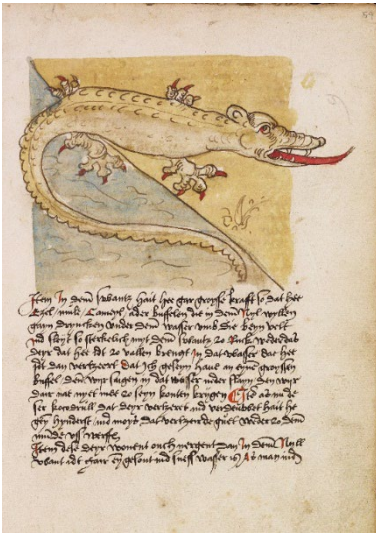 Item in dem swantz hait hee gar groysse kraft so dat hee
Ezel, mule, kameyl, ader buffelen die in dem Nyl wyllen
gaen dryncken vnder dem wasser vmb die beyn velt
ind sleyt so sterckelich myt dem swantz zo ruck weder dat
deyr dat hee idt zo vallen brengt in dat wasser dat hee
idt dan vertzeert dat ich geseyn haue in eyme groyssen
buffel, den wyr sagen in dat wasser neder slayn den wyr
dair nae nyet mee zo seyn konten krygen Item as in de
ser kocodrill dat deyr vertzeert ind verdeuwet hait he
gey hynderst ind moys dat vertzerde guet weder zo dem
munde vss werffen
Item dese deyr wonent ouch nergent dan in dem Nyll
want idt gair eyn gesont ind suess wasser is As man ind